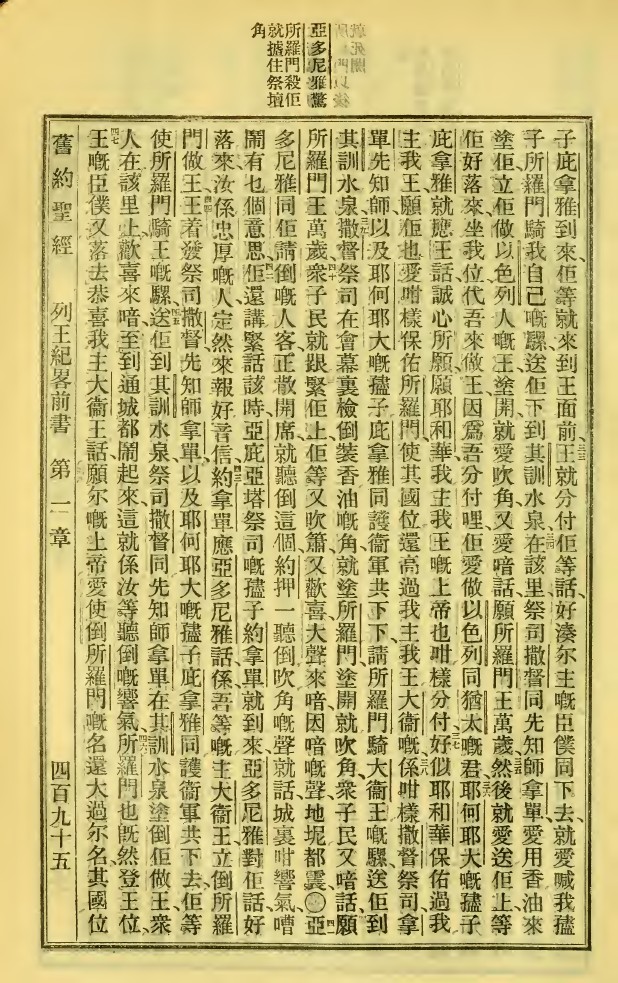 亞多尼雅驚
所羅門殺佢
就㨿住祭壇
角
子庇拿雅到來、佢等就來到王面前、三三王就分付佢等話、好湊尔主嘅臣僕同下去、就愛喊我𡥧
子所羅門騎我自己嘅騾、送佢下到其訓水泉、三四在該里祭司撒督同先知師拿單、愛用香油來
塗佢立佢做以色列人嘅王、塗開就愛吹角、又愛喑話、願所羅門王萬歲、三五然後就愛送佢上、等
佢好落來坐我位、代吾來做王、因爲吾分付哩佢愛做以色列同猶太嘅君、三六耶何耶大嘅𡥧子
庇拿雅就應王話、誠心所願、願耶和華我主我王嘅上帝也咁樣分付、三七好似耶和華保佑過我
主我王、願佢也愛咁樣保佑所羅門、使其國位還高過我主我王大衞嘅、三八係咁樣撒督祭司、拿
單先知師、以及耶何耶大嘅𡥧子庇拿雅同護衞軍共下下、請所羅門騎大衞王嘅騾、送佢到
其訓水泉、三九撒督祭司在會幕裏檢倒裝香油嘅角、就塗所羅門、塗開就吹角、衆子民又喑話、願
所羅門王萬歲、四十衆子民就跟緊佢上、佢等又吹簫、又歡喜大聲來喑、因喑嘅聲、地坭都震、〇四一亞
多尼雅同佢請倒嘅人客正散開席、就聽倒這個、約押一聽倒吹角嘅聲、就話、城裏咁響氣嘈
鬧有乜個意思、四二佢還講緊話該時、亞庇亞塔祭司嘅𡥧子約拿單就到來、亞多尼雅對佢話、好
落來、汝係忠厚嘅人、定然來報好音信、四三約拿單應亞多尼雅話、係、吾等嘅主大衞王立倒所羅
門做王、四四王着發祭司撒督、先知師拿單、以及耶何耶大嘅𡥧子庇拿雅、同護衞軍共下去、佢等
使所羅門騎王嘅騾、四五送佢到其訓水泉、祭司撒督同先知師拿單在其訓水泉塗倒佢做王、衆
人在該里上、歡喜來喑、至到通城都鬧起來、這就係汝等聽倒嘅響氣、四六所羅門也旣然登王位、
四七王嘅臣僕又落去恭喜我主大衞王話、願尔嘅上帝愛使倒所羅門嘅名還大過尔名、其國位
舊約聖經 列王紀畧前書 第一章 四百九十五